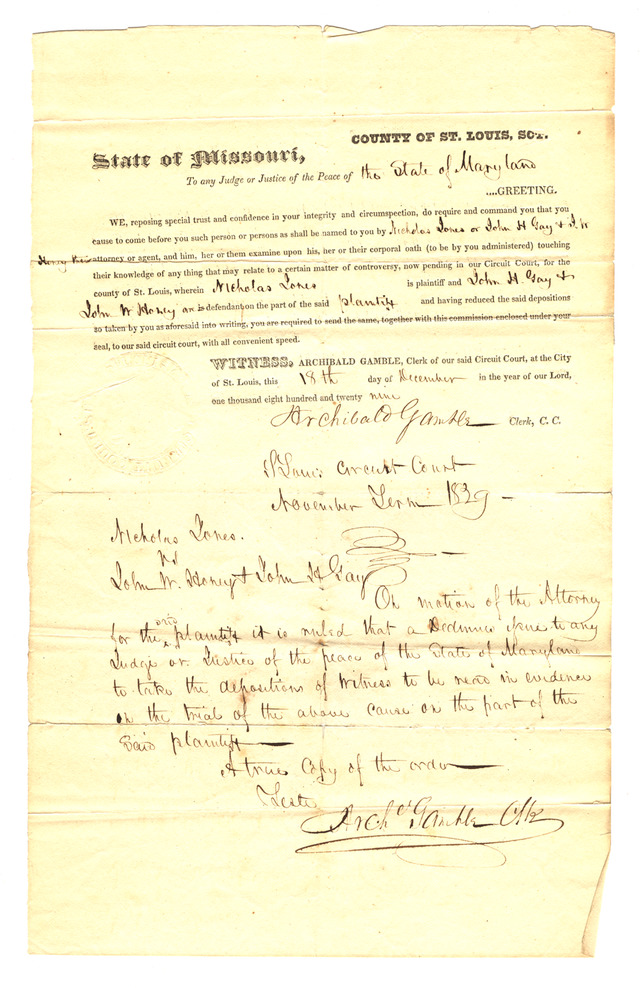 COUNTY OF ST. LOUIS, SCT.
State of Missouri,
To any Judge or Justice of the Peace of the State of Maryland
....GREETING.
WE, reposing special trust and confidence in your integrity and circumspection, do require and command you that you
cause to come before you such person or persons as shall be named to you by Nicholas Jones or John H Gay & J. W
Honey their attorney or agent, and him, her or them examine upon his, her or their corporal oath (to be by you administered) touching
their knowledge of any thing that may relate to a certain matter of controversy, now pending in our Circuit Court, for the
county of St. Louis, wherein Nicholas Jones is plaintiff and John H. Gay &
John W Honey are defendant on the part of the said plantiff and having reduced the said depositions
so taken by you as aforesaid into writing, you are required to send the same, together with this commission enclosed under your
seal, to our said circuit court, with all convenient speed.
WITNESS, ARCHIBALD GAMBLE, Clerk of our said Circuit Court, at the City
of St. Louis, this 18th day of December in the year of our Lord,
one thousand eight hundred and twenty nine
Archibald Gamble Clerk, C. C.
St Louis Circuit Court
November Term 1829
Nicholas Jones.
vs
John W. Honey & John H Gay
On motion of the Attorney
for the said plantiff it is ruled that a Dedimus issue to any
Judge or Justice of the peace of the State of Maryland
to take the depositions of Witness to be read in evidence
on the trial of the above cause on the part of the
said plantiff
A true Copy of the order
Teste
Archd Gamble Clk